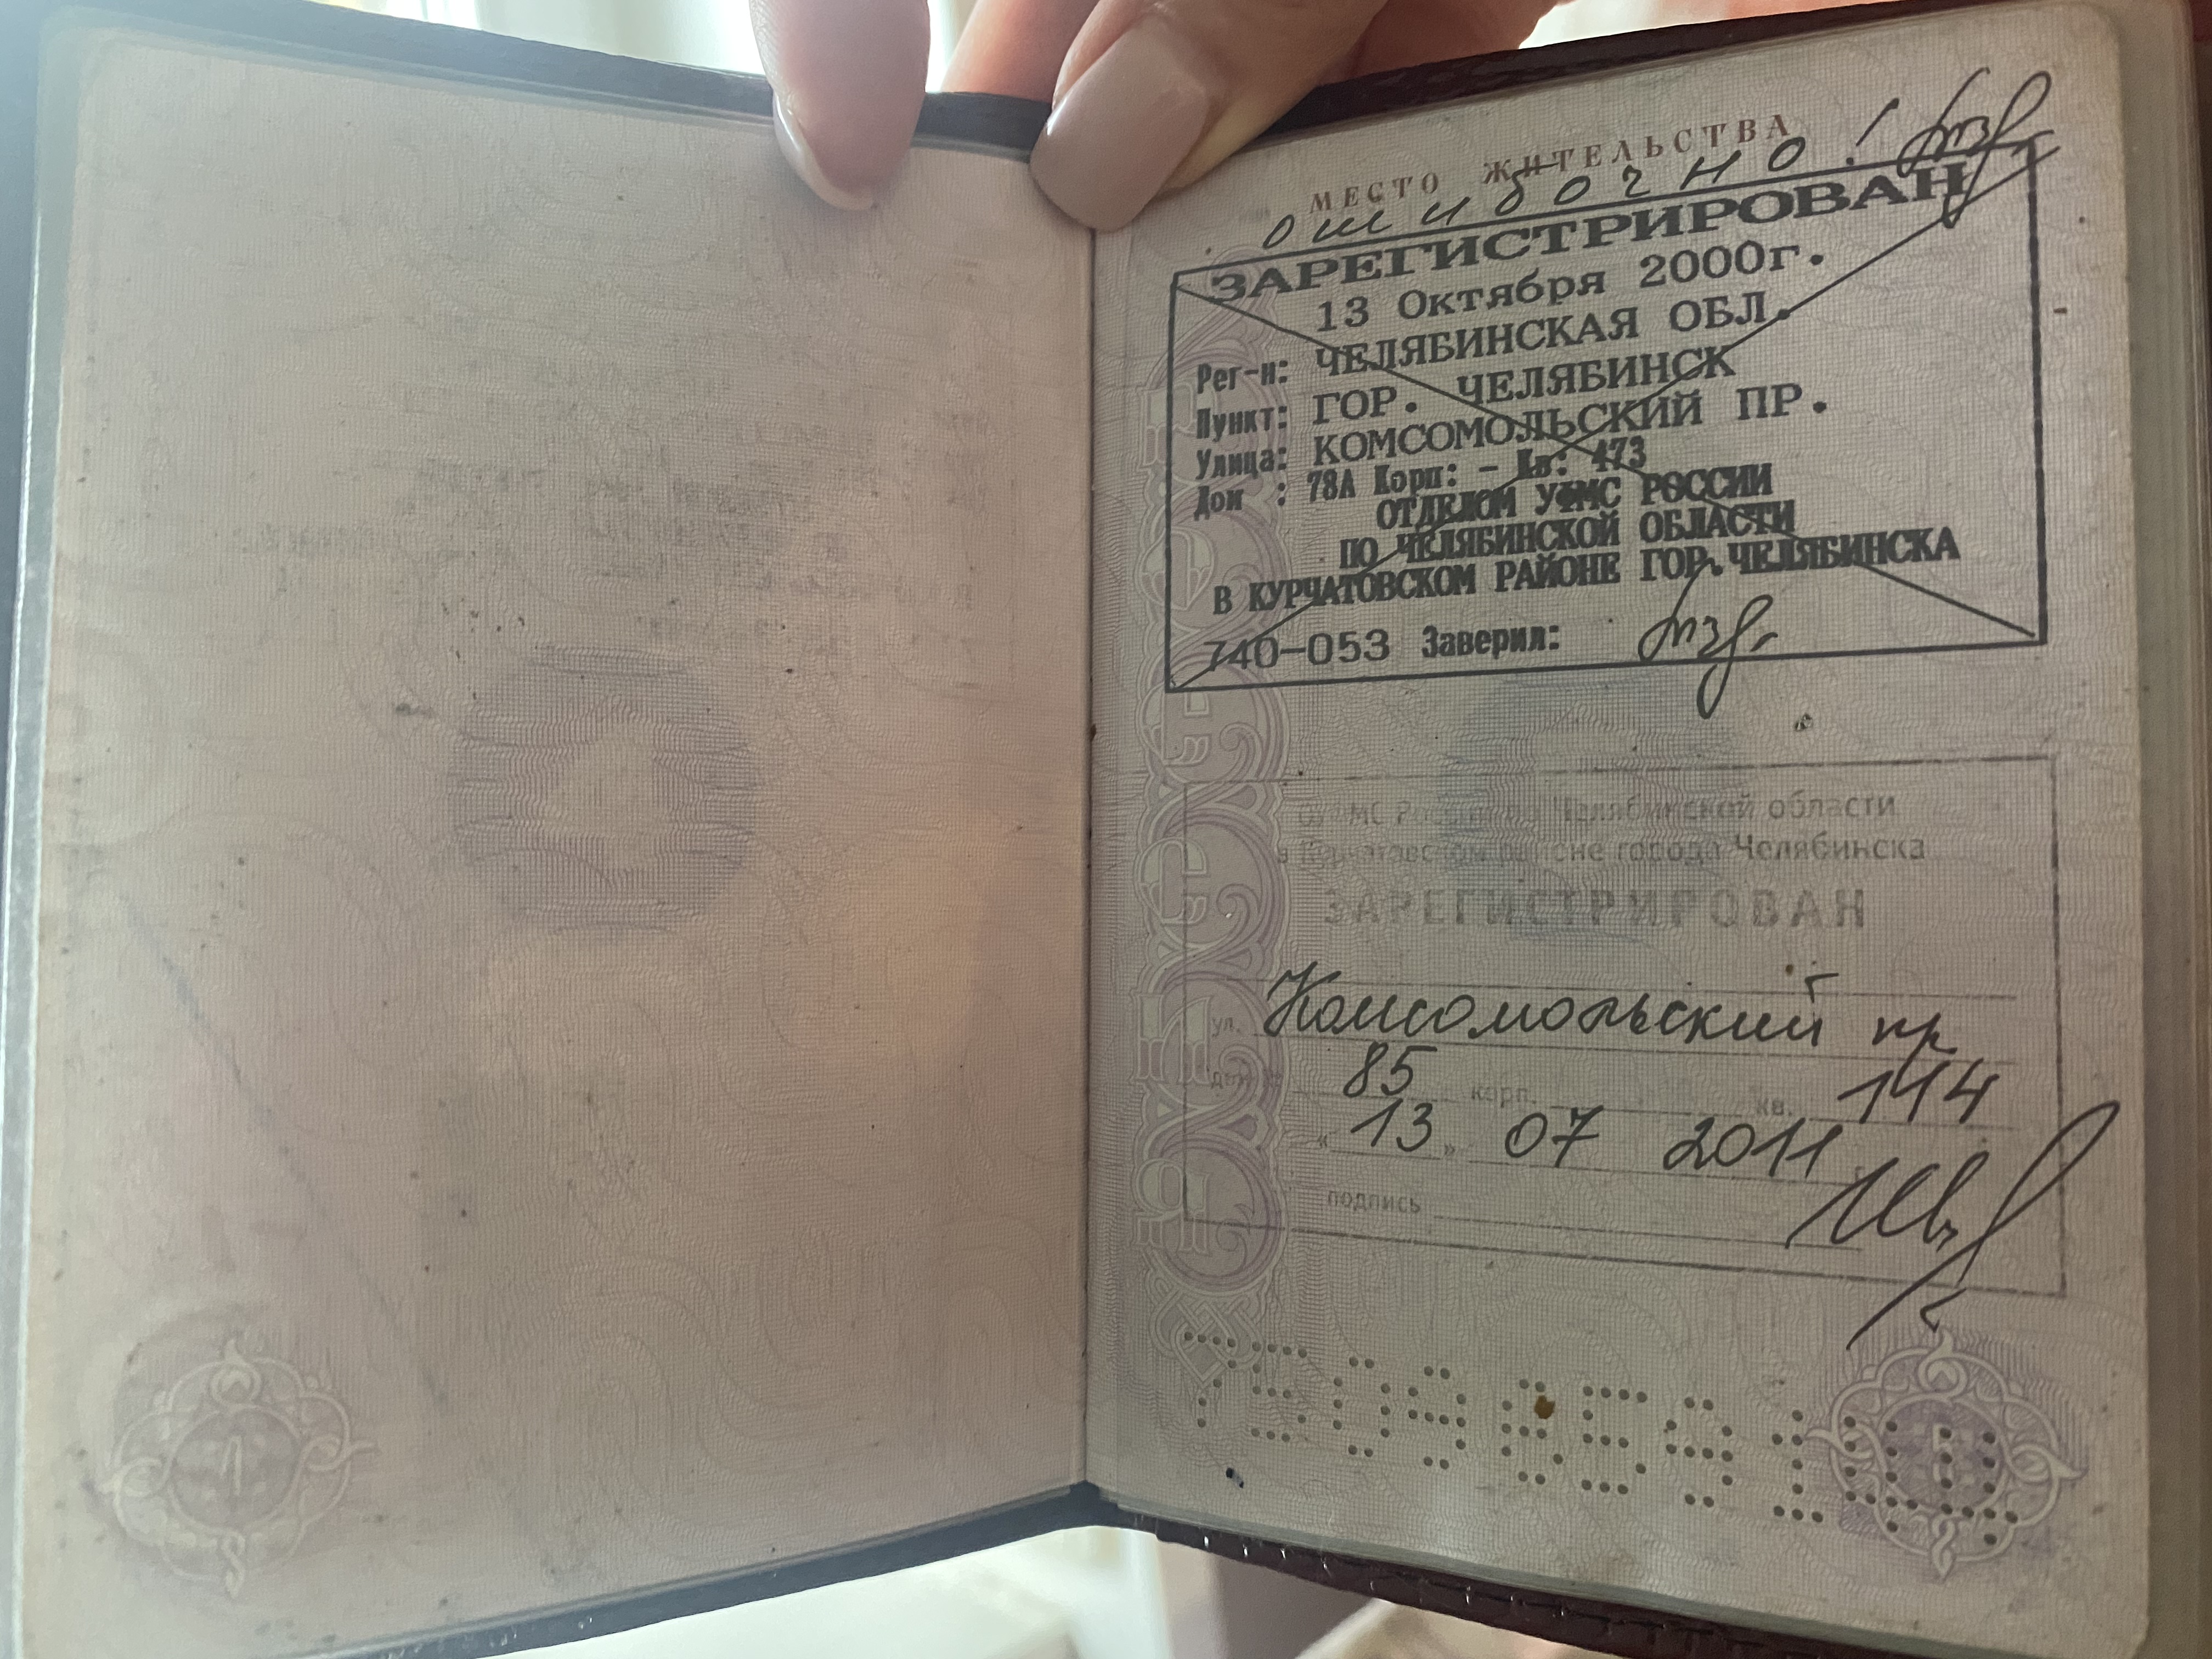 МЕСТО ЖИТЕЛЬСТВА
ошибочно.
ЗАРЕГИСТРИРОВАН
13 октября 2000г.
Рег-н: ЧЕЛЯБИНСКАЯ ОБЛ.
Пункт: ГОР. ЧЕЛЯБИНСК
Улица: КОМСОМОЛЬСКИЙ ПР.
Дом : 78А Корп: - Кв: 473
ОТДЕЛОМ УФМС РОССИИ
ПО ЧЕЛЯБИНСКОЙ ОБЛАСТИ
В КУРЧАТОВСКОМ РАЙОНЕ ГОР. ЧЕЛЯБИНСКА
740-053 Заверил:
области
районе города Челябинска
ЗАРЕГИСТРИРОВАН
ул. Комсомольский пр
дом 85 корп. кв. 144
« 13 » 07 2011
подпись